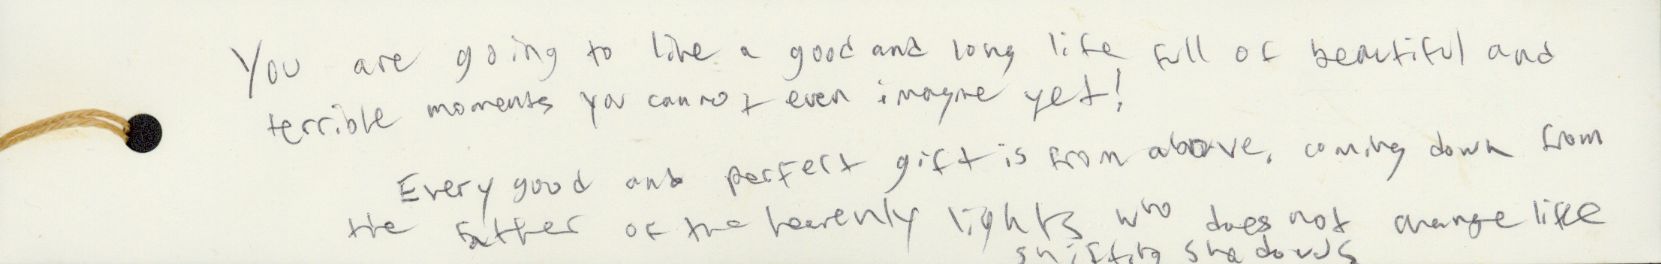 You are going to live a good and long life full of beautiful and
terrible moments you cannot even imagine yet!
Every good and perfect gift is from above, coming down from
the father of the heavenly lights who does not change like
shifting shadows